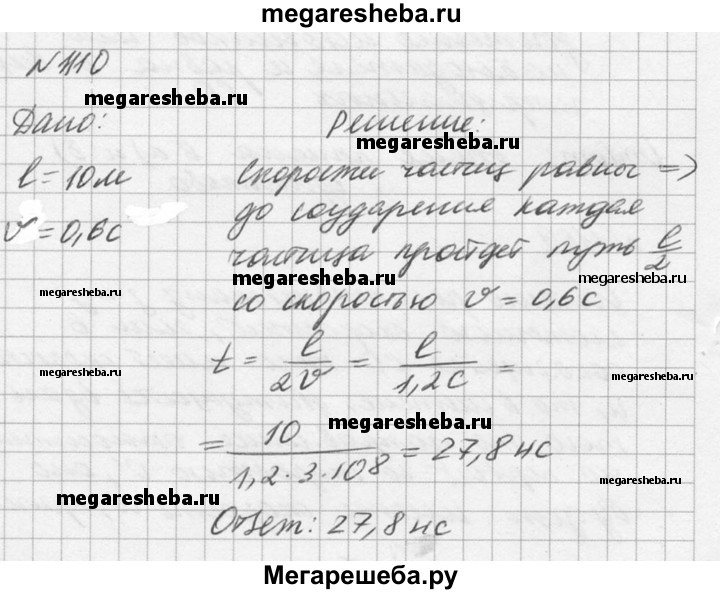 megaresheba.ru
№1110
megaresheba.ru
Дано: Решение:
megaresheba.ru
l = 10м Скорости частиц равны =>
до соударения каждая
v = 0,6c
частица пройдет путь l/2
megaresheba.ru megaresheba.ru
megaresheba.ru со скоростью v = 0,6c
t = l/2v = l/1,2c =
megaresheba.ru megaresheba.ru
megaresheba.ru
= 10/1,2·3·108 = 27,8 нс
megaresheba.ru megaresheba.ru
Ответ: 27,8 нс
Мегарешеба.ру